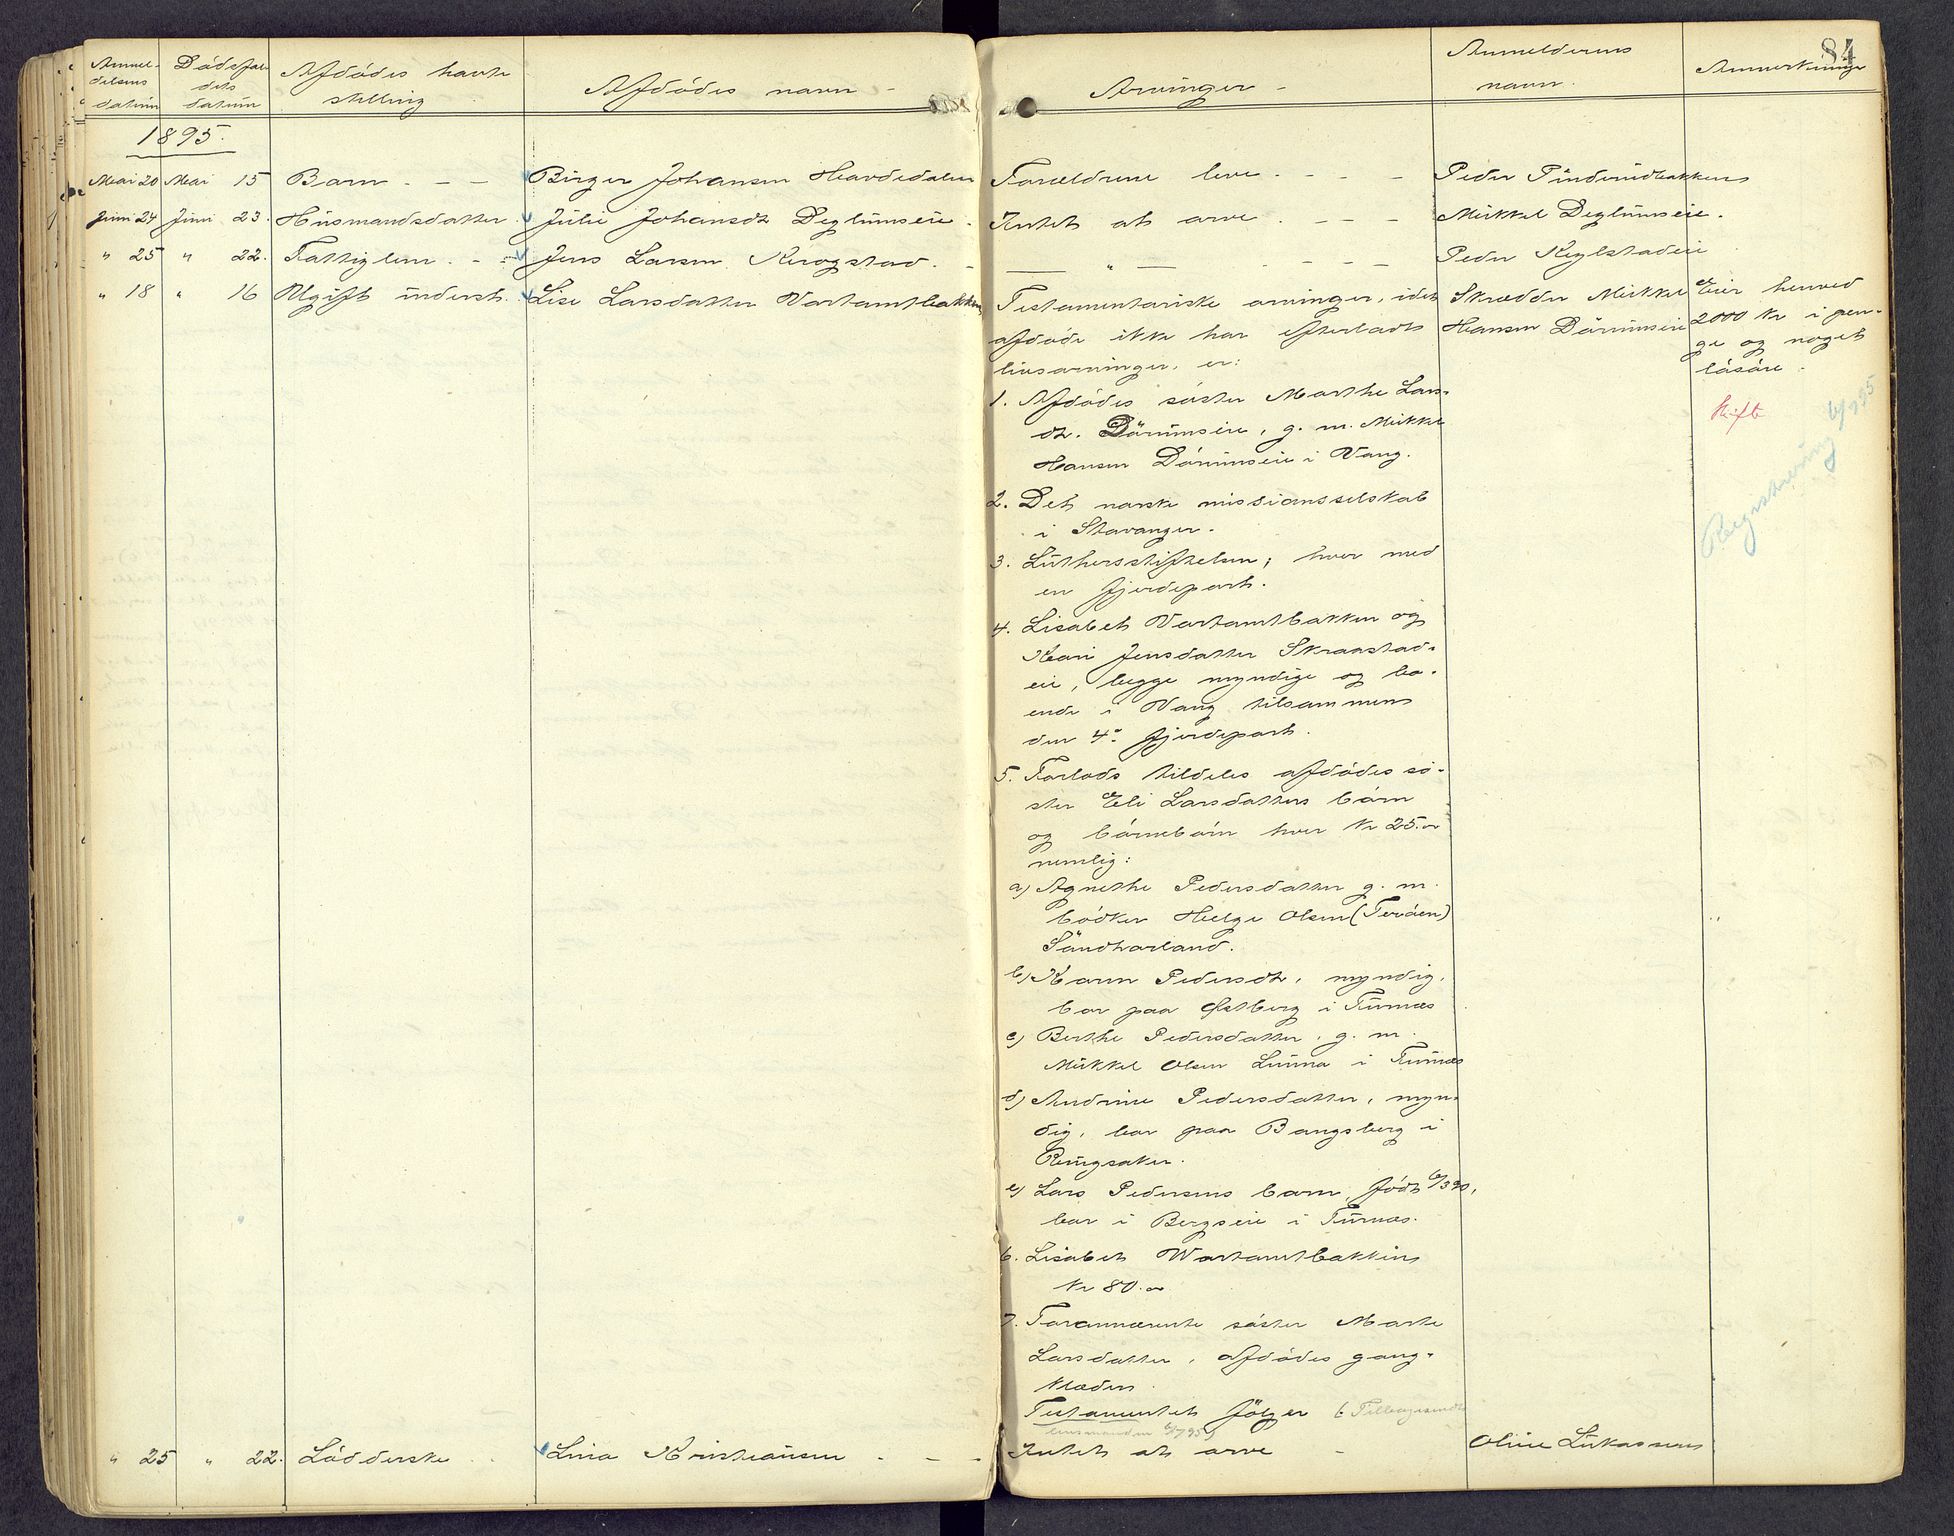 84
Anmel-
delsens
datum
Dödsfal
dets
datum
Afdödes havte
stilling
Afdödes navn
Arvinger
Anmelderens
navn.
Anmerkninger
1895.
Mai 20 Mai 15 Barn - - Birger Johansen Forældrene leve. - - - Peder
Juni 24 Juni 23. Husmandsdatter Julie Johansdt. Deglumseie Intet at arve. - - - Mikkel Deglumseie.
" 25 " 22. Fattiglem. - - Jens Larsen Krogstad. - — " — - - - Peder
" 18 " 16 Ugift inderst. Lise Larsdatter Vartamtbakken
Testamentariske arvinger, idet
afdöde ikke har efterladt
livsarvinger, er:
1. Afdödes söster Marthe Lars-
dt. Dörumseie, g. m. Mikkel
Hansen Dörumseie i Vang.
2. Det norske missionsselskab
i Stavanger.
3. Lutherstiftelsen; hver med
en fjerdepart.
4. Lisabet Vartamtbakken og
Kari Jensdatter Skraastad-
eie, begge myndige og bo-
ende i Vang tilsammens
den 4de fjerdepart.
5. Forlods tildeles afdödes sö-
ster Eli Larsdatters börn
og börnebörn hver Kr 25.00
nemlig:
a) Agnethe Pedersdatter g. m.
bödker Helge Olsen (Teröen)
Söndhorland.
b) Karen Pedersdt, myndig,
bor paa Östberg i Furnes
c) Berthe Pedersdatter, g. m.
Mikkel Olsen Linna i Furnes
d) Andrine Pedersdatter, myn-
dig, bor paa Bangsberg i
Ringsaker.
e) Lars Pedersens barn, födt 6/3 90,
bor i Bergseie i Furnes.
6. Lisabet Wartamtbakken
Kr 80.00
7. Forannævnte söster Marte
Larsdatter, afdödes gang-
klæder.
Testamentet fölger (Tilbagesendt
lensmanden 6/7 95)
Skrædder Mikkel
Hansen Dörumseie
Eier henved
2000 Kr i pen-
ge og noget
lösöre.
Skifte
Registrering 6/7 95
" 25 " 22. Lödderske - Lina Kristiansen - - - Intet at arve - Oline Lukassens